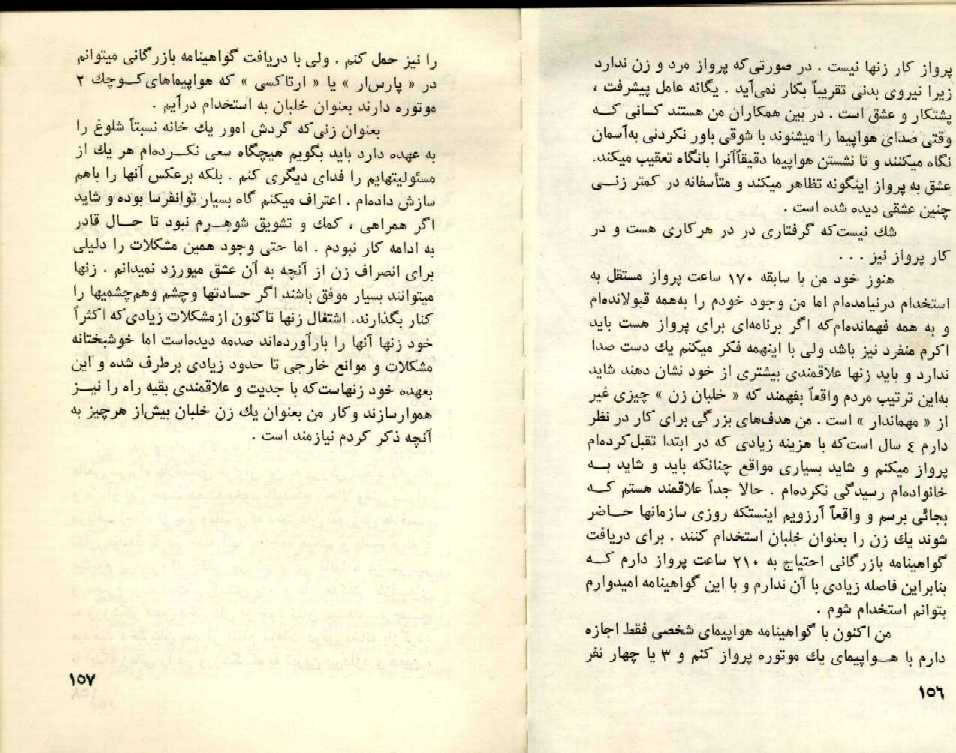 پرواز کار زنها نیست . در صورتی‌که پرواز مرد و زن ندارد
زیرا نیروی بدنی تقریباً بکار نمی‌آید . یگانه عامل پیشرفت ،
پشتکار و عشق است . در بین همکاران من هستند کـانی کـه
وقتی صدای هواپیما را میشنوند با شوقی باور نکردنی به‌آسمان
نگاه میکنند و تا نشستن هواپیما دقیقاًآنرا بانگاه تعقیب میکند.
عشق به پرواز اینگونه تظاهر میکند و متأسفانه در کمتر زنـی
چنین عشقی دیده شده است .
شك نیست‌که گرفتاری در در هرکاری هست و در
کار پرواز نیز . . .
هنوز خود من با سابقه ۱۷۰ ساعت پرواز مستقل به
استخدام درنیامده‌ام اما من وجود خودم را به‌همه قبولانده‌ام
و به همه فهمانده‌ام‌که اگر برنامه‌ای برای پرواز هست باید
اکرم منفرد نیز باشد ولی با اینهمه فکر میکنم یك دست صدا
ندارد و باید زنها علاقمندی بیشتری از خود نشان دهند شاید
به‌این ترتیب مردم واقعاً بفهمند که « خلبان زن » چیزی غیر
از « مهماندار » است . من هدف‌های بزرگی برای کار در نظر
دارم ٤ سال است‌که با هزینه زیادی که در ابتدا تقبل‌کرده‌ام
پرواز میکنم و شاید بسیاری مواقع چنانکه باید و شاید بــه
خانواده‌ام رسیدگی نکرده‌ام . حالا جداً علاقمند هستم کـه
بجائی برسم و واقعاً آرزویم اینستکه روزی سازمانها حـاضر
شوند یك زن را بعنوان خلبان استخدام کنند . برای دریافت
گواهینامه بازرگانی احتیاج به ۲۱۰ ساعت پرواز دارم کــه
بنابراین فاصله زیادی با آن ندارم و با این گواهینامه امیدوارم
بتوانم استخدام شوم .
من اکنون با گواهینامه هواپیمای شخصی فقط اجازه
دارم با هــواپیمای یك موتوره پرواز کنم و ۳ یا چهار نفر
۱۵٦
را نیز حمل کنم . ولی با دریافت گواهینامه بازرگانی میتوانم
در « پارس‌ار » یا « ارتاکسی » که هواپیماهای‌کــوچك ۲
موتوره دارند بعنوان خلبان به استخدام درآیم .
بعنوان زنی‌که گردش امور یك خانه نسبتاً شلوغ را
به عهده دارد باید بگویم هیچگاه سعی نکـرده‌ام هر یك از
مسئولیتهایم را فدای دیگری کنم . بلکه برعکس آنها را باهم
سازش داده‌ام . اعتراف میکنم گاه بسیار توانفرسا بوده و شاید
اگر همراهی ، کمك و تشویق شوهـرم نبود تا حـال قادر
به ادامه کار نبودم . اما حتی وجود همین مشکلات را دلیلی
برای انصراف زن از آنچه به آن عشق میورزد نمیدانم . زنها
میتوانند بسیار موفق باشند اگر حسادتها وچشم وهم‌چشمیها را
کنار بگذارند. اشتغال زنها تاکنون ازمشکلات زیادی‌که اکثراً
خود زنها آنها را بارآورده‌اند صدمه دیده‌است اما خوشبختانه
مشکلات و موانع خارجی تا حدود زیادی برطرف شده و این
بعهده خود زنهاست‌که با جدیت و علاقمندی بقیه راه را نیـز
هموارسازند وکار من بعنوان یك زن خلبان بیش‌از هرچیز به
آنچه ذکر کردم نیازمند است .
۱۵۷